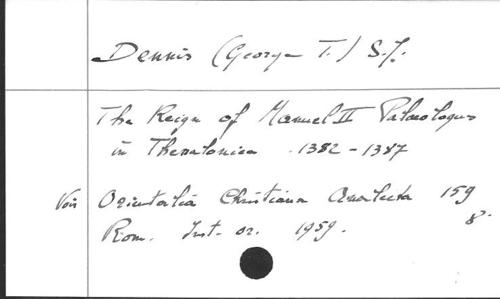 Dennis (George T.) S.J.
The Reign of Manuel II Palaeologus
in Thessalonica 1382-1387
Voir Orientalia Christiana Analecta 159
8°
Rom. Inst. or. 1959.